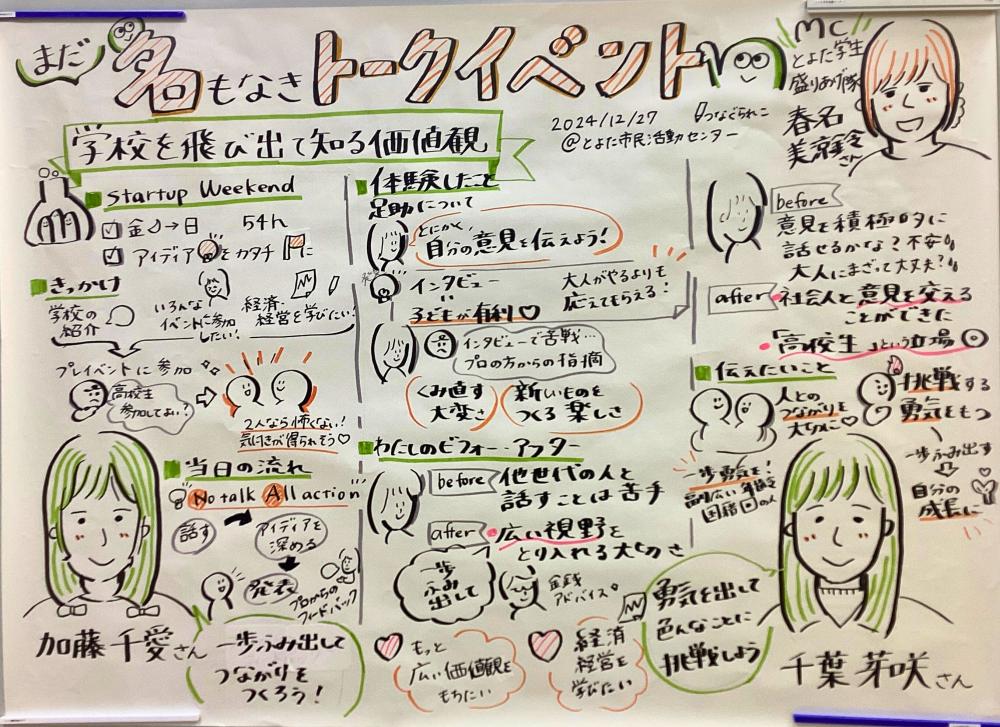 まだ
名もなきトークイベント
MC
とよた学生
盛りあげ隊
春名
美涼鈴さん
学校を飛び出て知る価値観
2024/12/27
つなぐられこ
@とよた市民活動センター
startup Weekend
金→日 54h
アイディアをカタチに
きっかけ
学校の
紹介
いろんな
イベントに参加
したい!
経済・
経営を学びたい!
プレイベントに参加
高校生
参加してよい?
2人なら怖くない!
気付きが得られそう♡
当日の流れ
No talk All action
話す
アイディアを
深める
発表
プロからの
フィードバック
加藤 千愛さん
一歩ふみ出して
つながりを
つくろう!
体験したこと
足助について
とにかく
自分の意見を伝えよう!
インタビュー
子どもが有利♡
大人がやるよりも
応えてもらえる!
インタビューで苦戦…
プロの方からの指摘
くみ直す
大変さ
新しいものを
つくる楽しさ
わたしのビフォーアフター
before
他世代の人と
話すことは苦手
after
広い視野を
とり入れる大切さ
一歩
ふみ
出して
金銭
アドバイス
もっと
広い価値観を
もちたい
経済
経営を
学びたい
before
意見を積極的に
話せるかな?不安
大人にまざって大丈夫?
after
社会人と意見を交える
ことができた
「高校生」という立場◎
伝えたいこと
人との
つながりを
大切に♡
挑戦する
勇気をもつ
一歩ふみ出す
自分の
成長に
一歩勇気を!
幅広い年齢
国籍の人
勇気を出して
色んなことに
挑戦しよう
千葉 芽咲さん